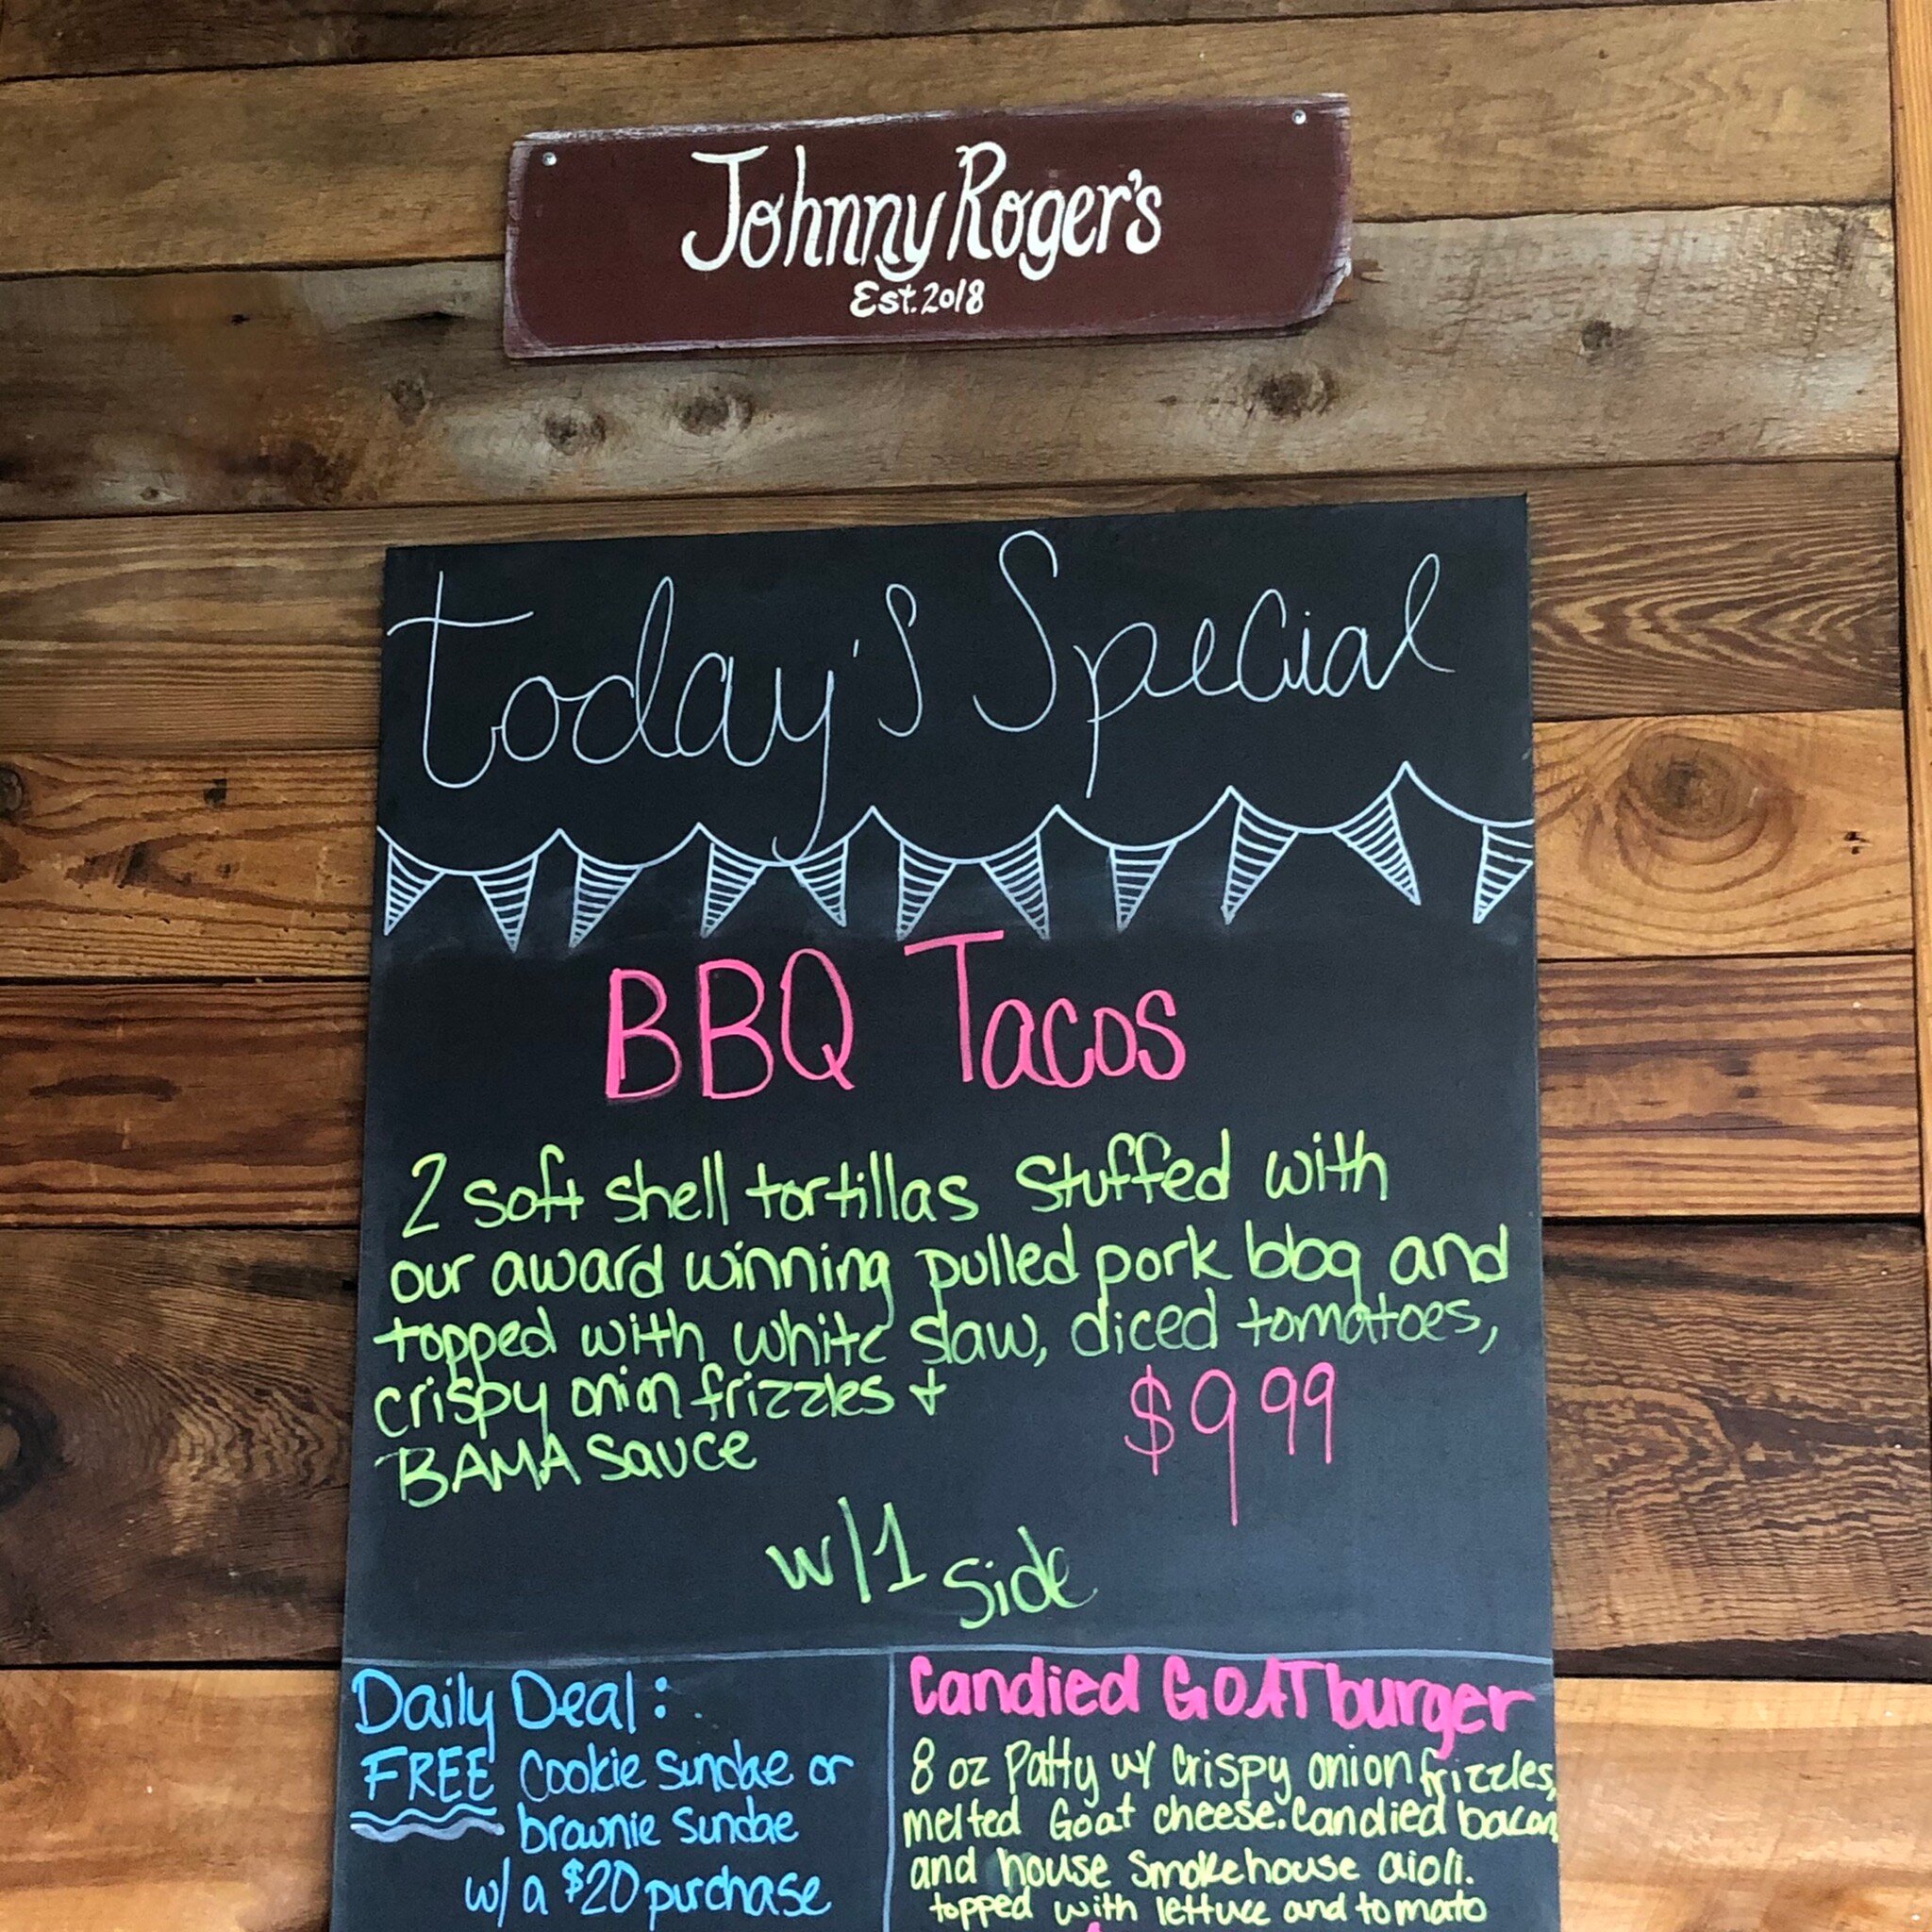 Johnny Roger's
Est. 2018
Today's Special
BBQ Tacos
2 soft shell tortillas stuffed with
our award winning pulled pork bbq and
topped with white slaw, diced tomatoes,
crispy onion frizzles +
BAMA sauce
$9.99
w/1 side
Daily Deal:
FREE Cookie sundae or
brownie sundae
w/ a $20 purchase
Candied GOAT burger
8 oz Patty w/ crispy onion frizzles,
melted Goat cheese. Candied bacon
and house smokehouse aioli.
topped with lettuce and tomato